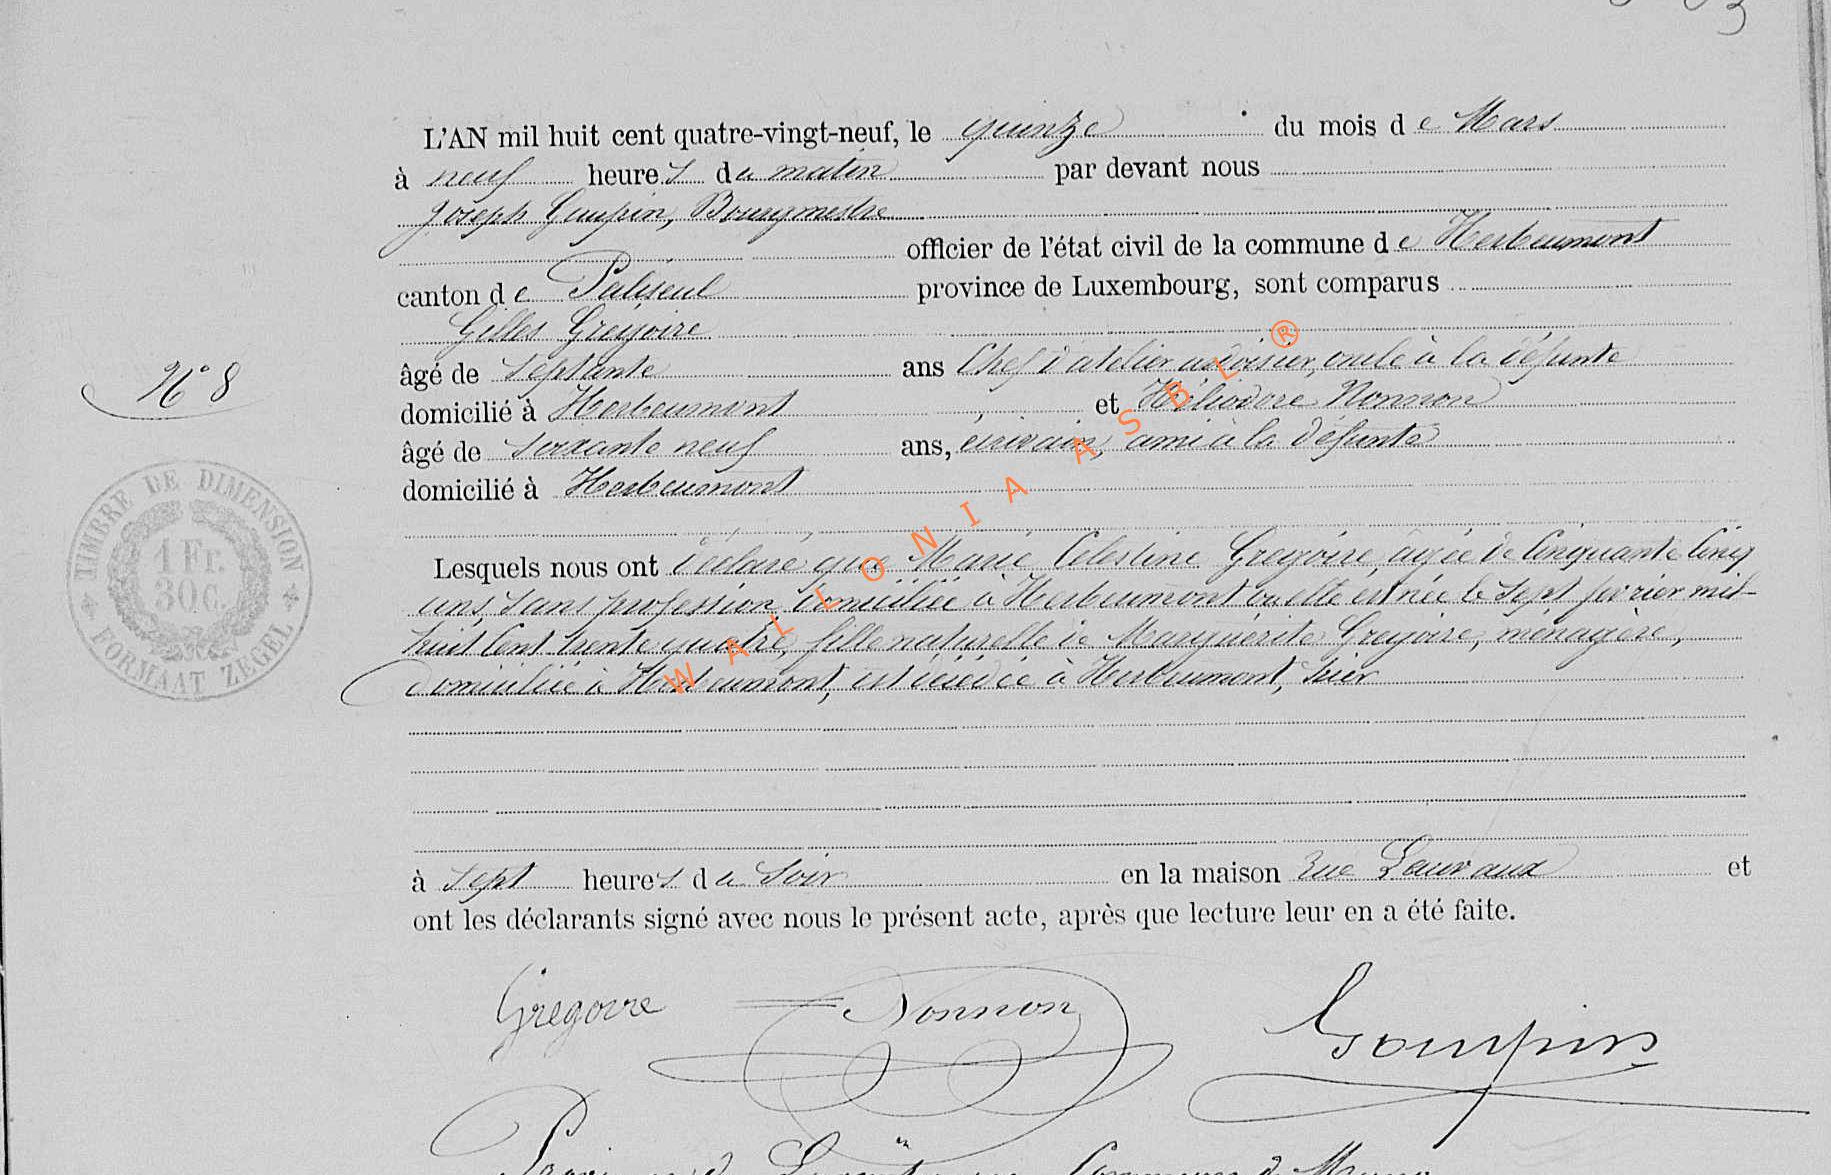 L'AN mil huit cent quatre-vingt-neuf, le quinze du mois de Mars
à neuf heures du matin par devant nous
Joseph Goupin, Bourgmestre
officier de l'état civil de la commune de Herbeumont
canton de Paliseul province de Luxembourg, sont comparus
Gilles Gregoire
âgé de septante ans Chef d'atelier ardoisier, oncle à la défunte
domicilié à Herbeumont, et Héliodore Nonnon
âgé de soixante neuf ans, écrivain, ami à la défunte
domicilié à Herbeumont
Lesquels nous ont déclaré que Marie Célestine Gregoire, âgée de Cinquante Cinq
ans, sans profession, domiciliée à Herbeumont où elle est née le sept février mil-
huit Cent trente quatre, fille naturelle de Marguérite Gregoire, ménagère,
domiciliée à Herbeumont, est décédée à Herbeumont, hier
à sept heures du soir en la maison rue Lauvaux et
ont les déclarants signé avec nous le présent acte, après que lecture leur en a été faite.
Gregoire Nonnon Goupin
N° 8
TIMBRE DE DIMENSION
1 Fr.
30 C.
FORMAAT ZEGEL
WALLONIA ASBL ®